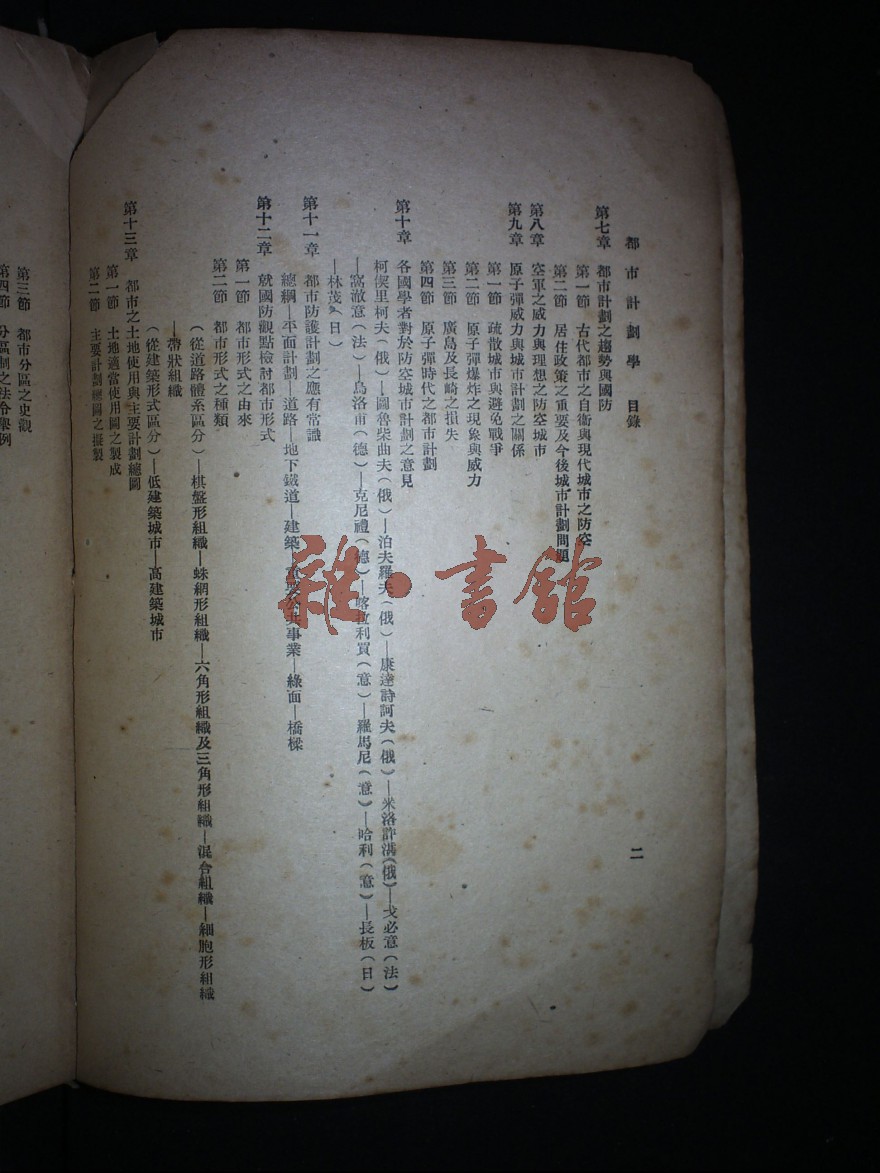 都市計劃學 目錄
二
第七章 都市計劃之趨勢與國防
第一節 古代都市之自衞與現代城市之防空
第二節 居住政策之重要及今後城市計劃問題
第八章 空軍之威力與理想之防空城市
第九章 原子彈威力與城市計劃之關係
第一節 疏散城市與避免戰爭
第二節 原子彈爆炸之現象與威力
第三節 廣島及長崎之損失
第四節 原子彈時代之都市計劃
第十章 各國學者對於防空城市計劃之意見
柯俟里柯夫(俄)—圖魯柴曲夫(俄)—泊夫羅夫(俄)—康達詩訶夫(俄)—米洛許溝(俄)—戈必意(法)
—窩澈意(法)—烏洛甫(德)—克尼禮(德)—喀拉利買(意)—羅馬尼(意)—哈利(意)—長板(日)
—林茂(日)
第十一章 都市防護計劃之應有常識
總綱—平面計劃—道路—地下鐵道—建築—公共事業—綠面—橋樑
第十二章 就國防觀點檢討都市形式
第一節 都市形式之由來
第二節 都市形式之種類
(從道路體系區分)—棋盤形組織—蛛網形組織—六角形組織及三角形組織—混合組織—細胞形組織
—帶狀組織
(從建築形式區分)—低建築城市—高建築城市
第十三章 都市之土地使用與主要計劃總圖
第一節 土地適當使用圖之製成
第二節 主要計劃總圖之擬製
第三節 都市分區之史觀
第四節 分區制之法令舉例
雜·書館